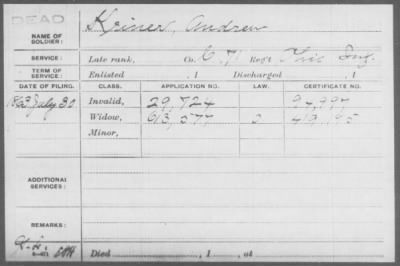 DEAD
NAME OF SOLDIER: Kriner, Andrew
SERVICE: Late rank, Co. C, 71 Reg't Ohio Inf.
TERM OF SERVICE: Enlisted , 1 Discharged , 1
DATE OF FILING. CLASS. APPLICATION NO. LAW. CERTIFICATE NO.
1863 July 30 Invalid, 29,724 94,797
Widow, 613,577 419,195
Minor,
ADDITIONAL SERVICES:
REMARKS:
Died , 1 , at